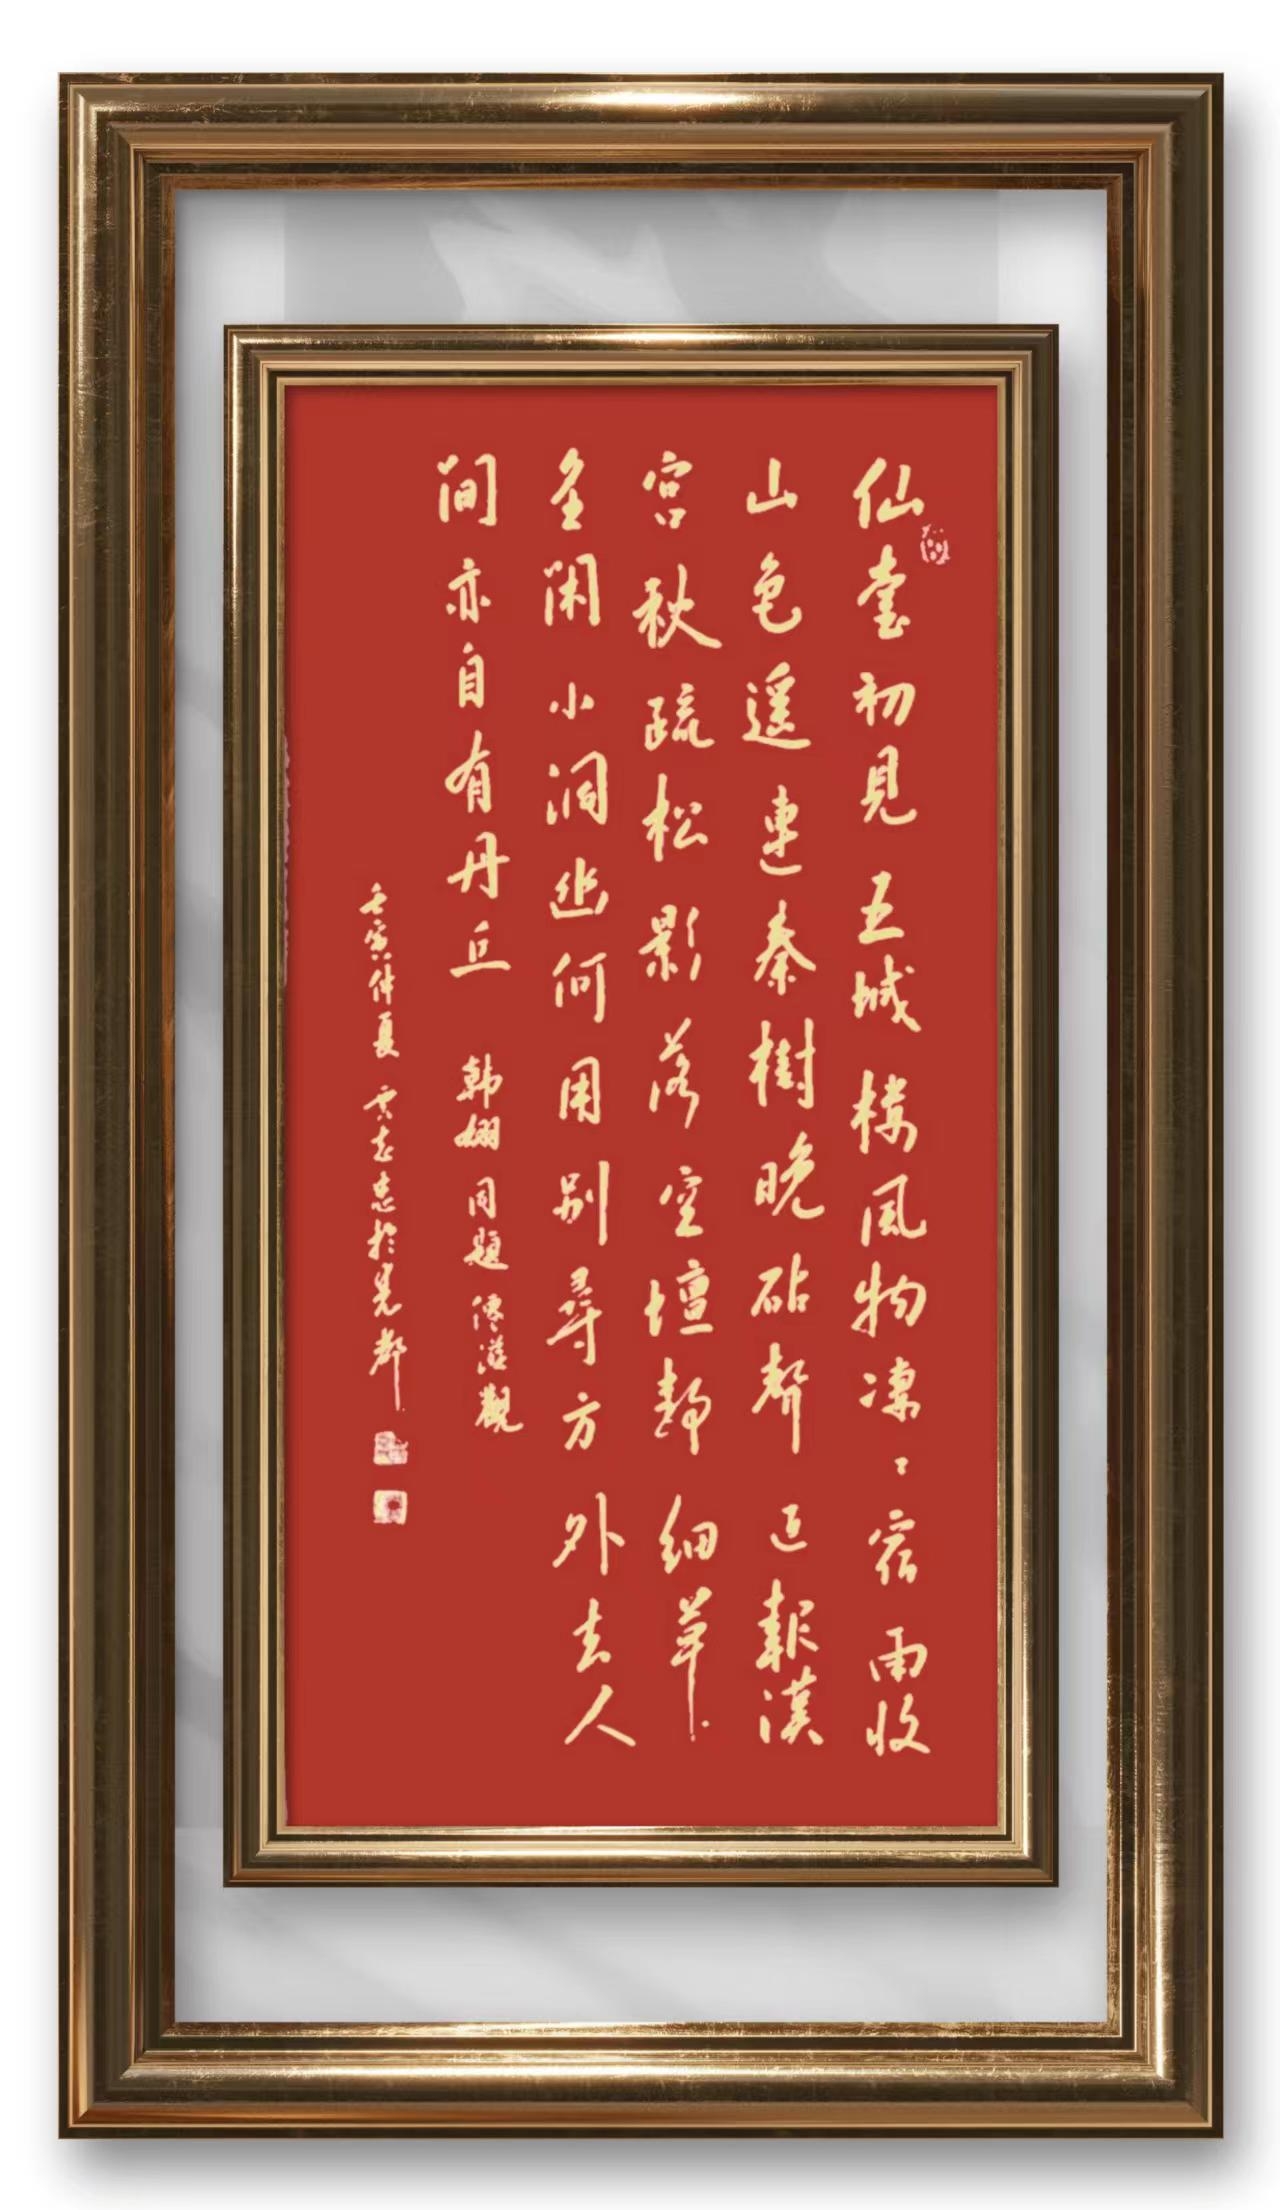 仙臺初見五城楼風物凄〻宿雨收
山色遥連秦樹晚砧聲近報漢
宮秋疏松影落空壇静細草
香閑小洞幽何用别尋方外去人
间亦自有丹丘 韩翃同題僊遊觀
壬寅仲夏 志忠於 都